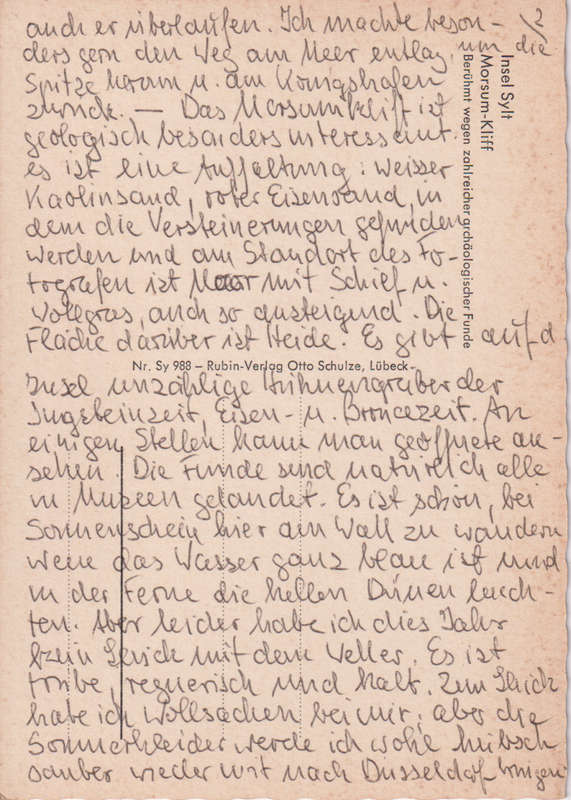 2
auch er überlaufen. Ich machte beson-
ders gern den Weg am Meer entlag, um die
Spitze herum u. am Königshafen
zurück. — Das Morsumkliff ist
geologisch besonders interessant.
es ist eine Auffaltung: weisser
Kaolinsand, roter Eisensand, in
dem die Versteinerungen gefunden
werden und am Standort des Fo-
tografen ist Moor mit Schilf u.
Wollgras, auch so ansteigend. Die
Fläche darüber ist Heide. Es gibt auf d.
Insel unzählige Hühnengräber der
Jungsteinzeit, Eisen- u. Broncezeit. An
einigen Stellen kann man geöffnete an-
sehen. Die Funde sind natürlich alle
in Museen gelandet. Es ist schön, bei
Sonnenschein hier am Wall zu wandern
wenn das Wasser ganz blau ist und
in der Ferne die hellen Dünen leuch-
ten. Aber leider habe ich dies Jahr
kein Glück mit dem Wetter. Es ist
trübe, regnerisch und kalt. Zum Glück
habe ich Wollsachen bei mir, aber die
Sommerkleider werde ich wohl hübsch
sauber wieder mit nach Düsseldorf bringen
Insel Sylt
Morsum-Kliff
Berühmt wegen zahlreicher archäologischer Funde
Nr. Sy 988 – Rubin-Verlag Otto Schulze, Lübeck-